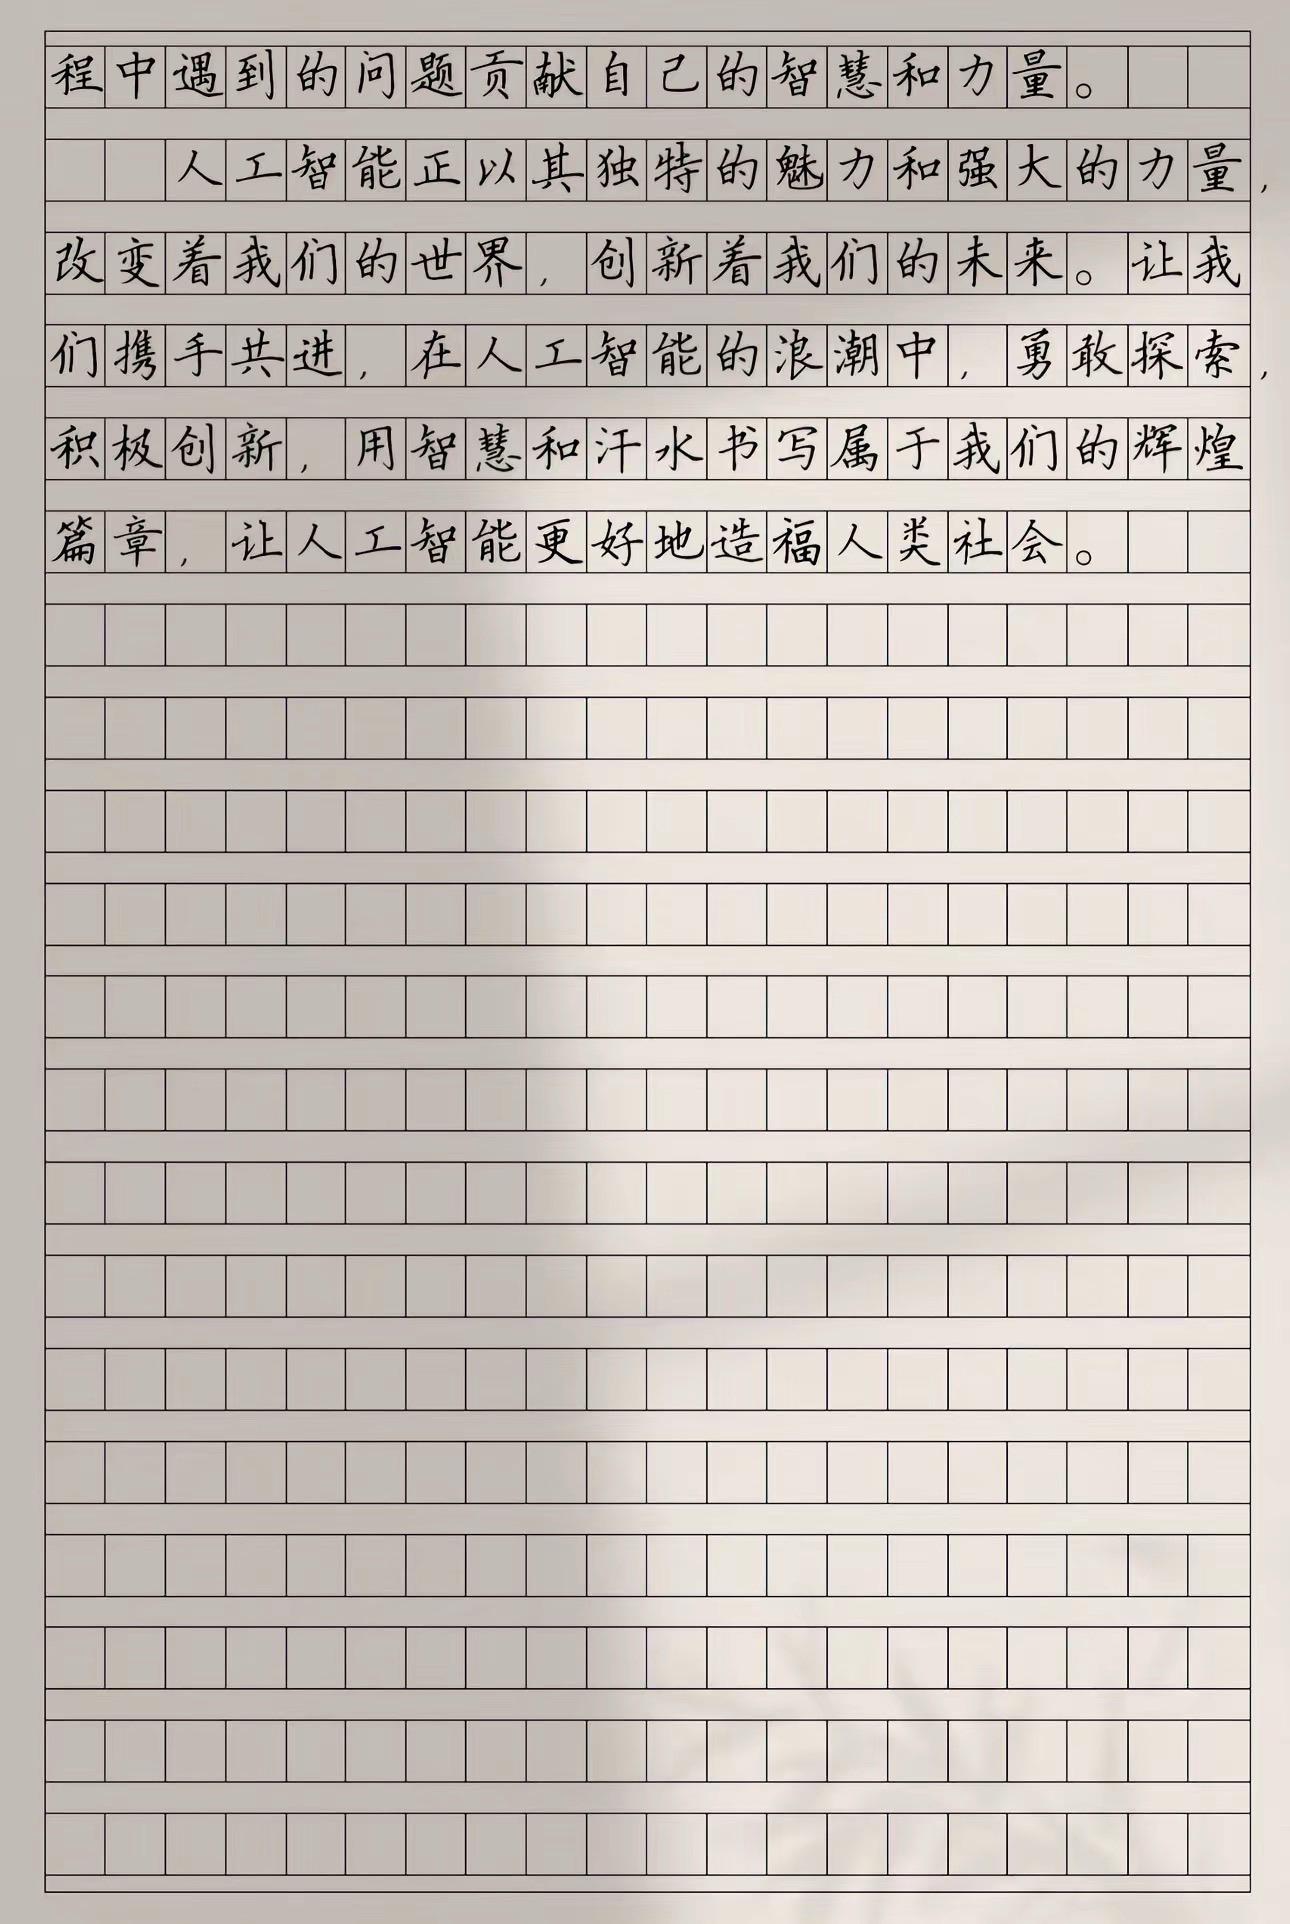 程中遇到的问题贡献自己的智慧和力量。
人工智能正以其独特的魅力和强大的力量，
改变着我们的世界，创新着我们的未来。让我
们携手共进，在人工智能的浪潮中，勇敢探索，
积极创新，用智慧和汗水书写属于我们的辉煌
篇章，让人工智能更好地造福人类社会。